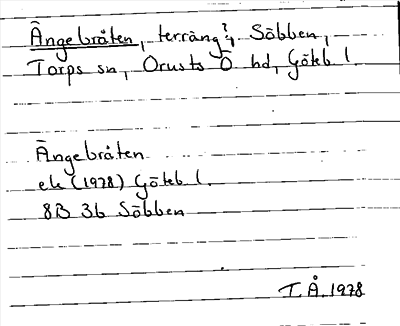 Ängebråten, terräng?, Säbben,
Torps sn, Orusts Ö hd, Göteb l.
Ängebråten
ek (1978) Göteb l.
8B 3b Säbben
T.Å. 1978